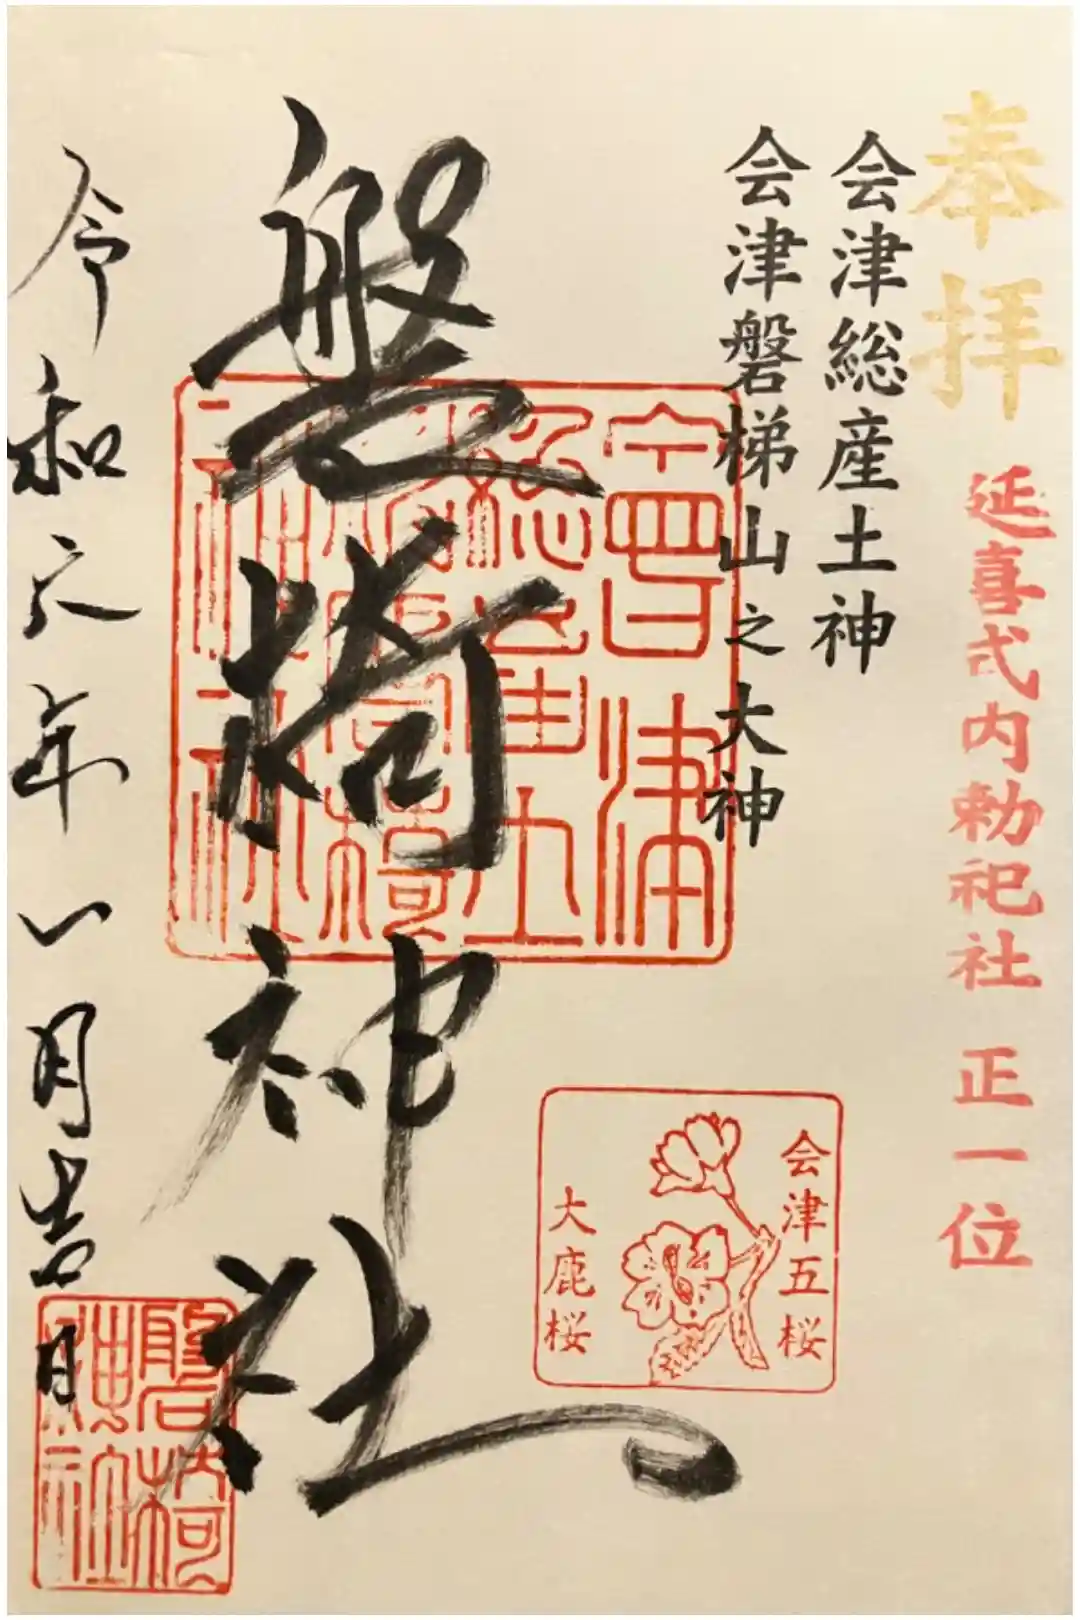 奉拝
延喜式内勅祀社 正一位
会津総産土神
会津磐梯山之大神
磐椅神社
令和元年八月吉日
会津五桜
大鹿桜
磐椅神社